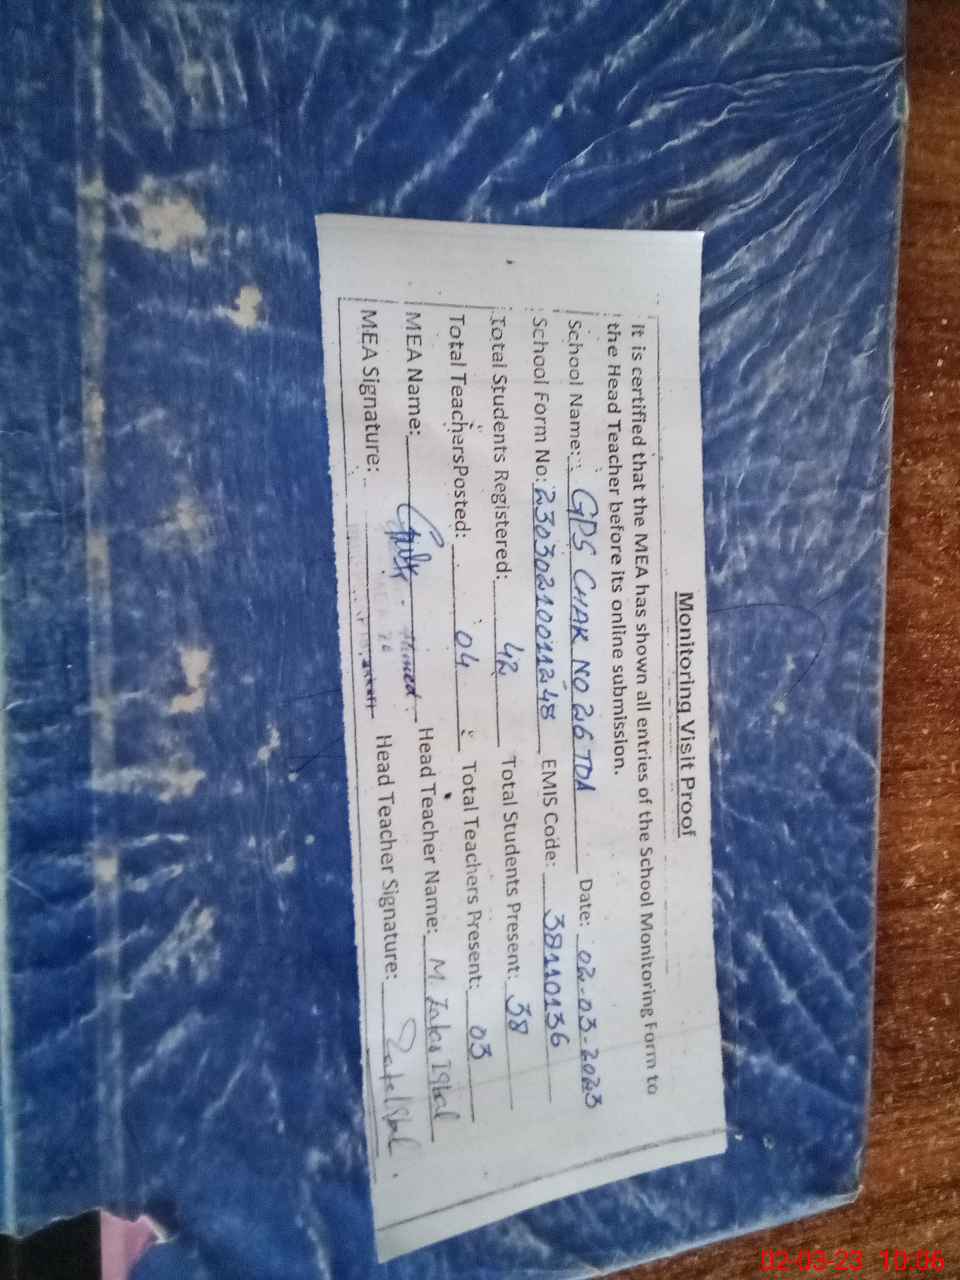 Monitoring Visit Proof
It is certified that the MEA has shown all entries of the School Monitoring Form to
the Head Teacher before its online submission.
School Name: GPS CHAK NO 26 TDA Date: 02-03-2023
School Form No: 23030210011248 EMIS Code: 38110136
Total Students Registered: 42 Total Students Present: 38
Total TeachersPosted: 04 Total Teachers Present: 03
MEA Name: Ahmed Head Teacher Name: M. Iqbal
MEA Signature: Head Teacher Signature:
02-03-23 10:06